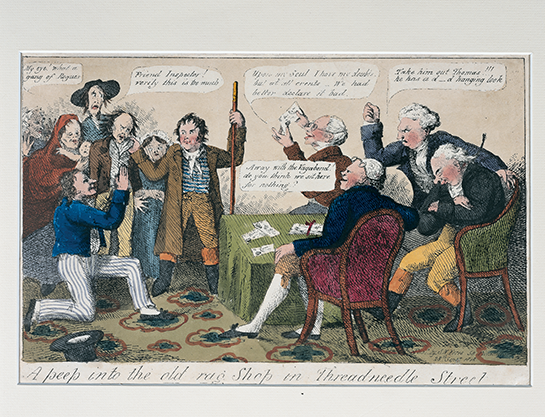 My eye what a
gang of Rogues
Friend Inspector!
verely this is too much
Upon my Soul I have my doubts,
but at all events We had
better declare it bad.
Take him out Thomas!!!
he has a d___d hanging look
Away with the Vagabond,
do you think we sit here
for nothing?
A peep into the old rag Shop in Threadneedle Street